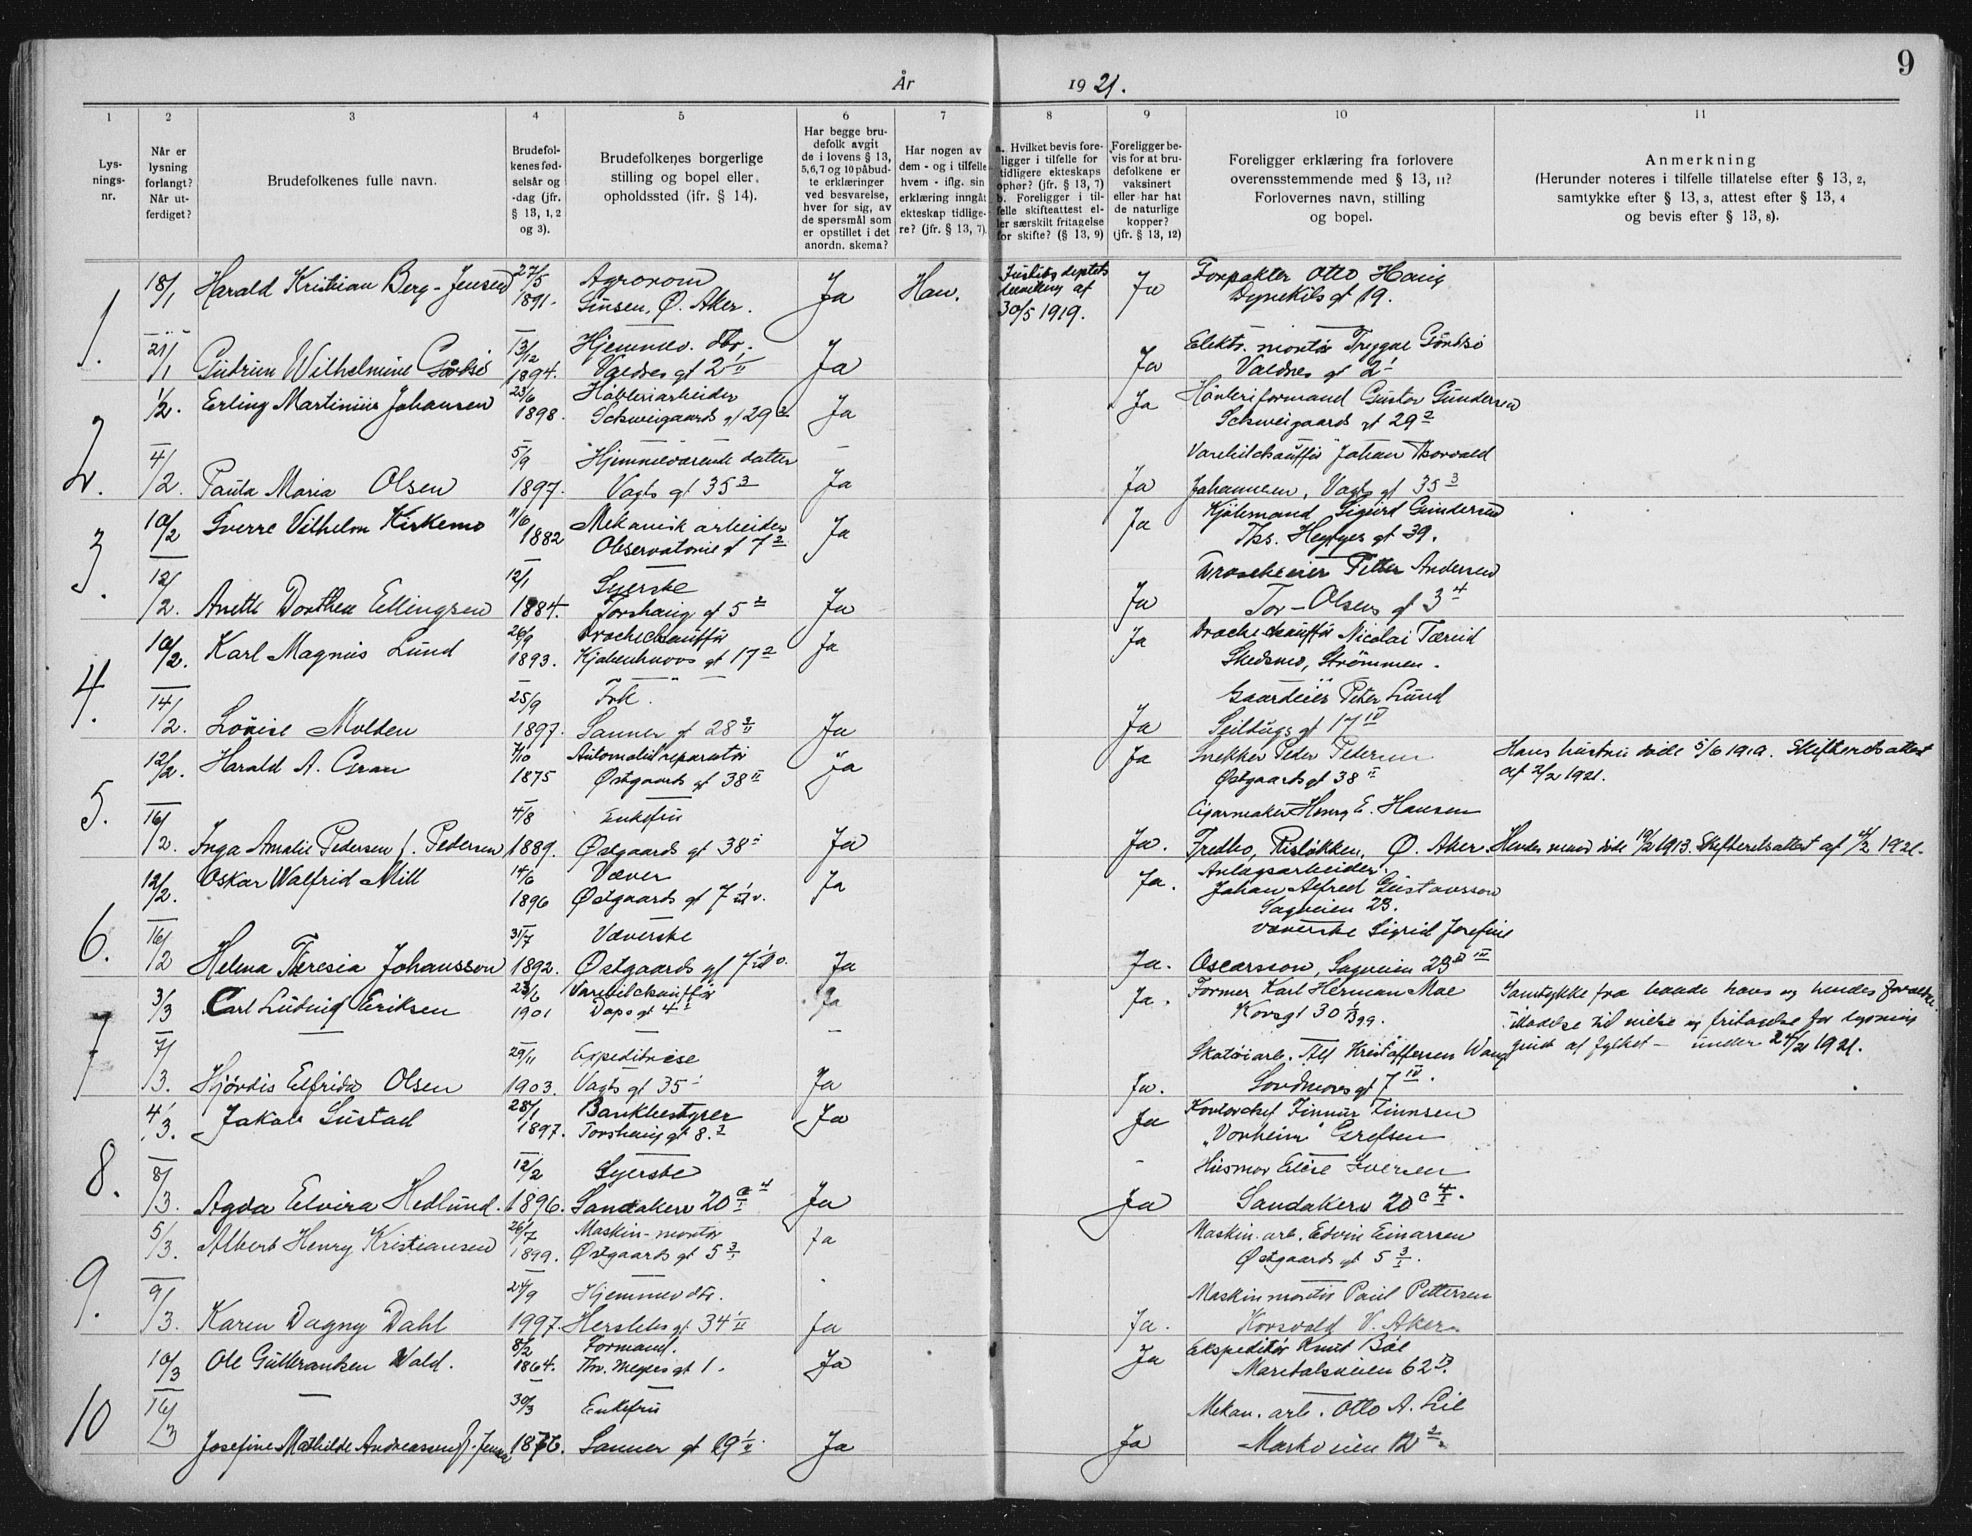 9
År 1921.
1 2 3 4 5 6 7 8 9 10 11
Lys-
nings-
nr.
Når er
lysning
forlangt?
Når ut-
ferdiget?
Brudefolkenes fulle navn.
Brudefol-
kenes fød-
selsår og
-dag (jfr.
§ 13, 1, 2
og 3).
Brudefolkenes borgerlige
stilling og bopel eller
opholdssted (jfr. § 14).
Har begge bru-
defolk avgit
de i lovens § 13,
5,6,7 og 10 påbud-
te erklæringer
ved besvarelse,
hver for sig, av
de spørsmål som
er opstillet i det
anordn. skema?
Har nogen av
dem - og i tilfelle
hvem - iflg. sin
erklæring inngåt
ekteskap tidlige-
re? (jfr. § 13, 7).
a. Hvilket bevis fore-
ligger i tilfelle for
tidligere ekteskaps
ophør? (jfr. § 13, 7)
b. Foreligger i til-
felle skifteattest el-
ler særskilt fritagelse
for skifte? (§ 13, 9)
Foreligger be-
vis for at bru-
defolkene er
vaksinert
eller har hat
de naturlige
kopper?
(jfr. § 13, 12)
Foreligger erklæring fra forlovere
overensstemmende med § 13, 11?
Forlovernes navn, stilling
og bopel.
Anmerkning
(Herunder noteres i tilfelle tillatelse efter § 13, 2,
samtykke efter § 13, 3, attest efter § 13, 4
og bevis efter § 13, 8).
1. 18/1 Harald Kristian Berg-Jensen 27/5 1891. Agronom Ja Han. Ja Forpakter Otto Haug
Sinsen, Ø. Aker. 30/5 1919. Dynekilsgt 19.
21/1 Gudrun Wilhelmine 13/12 1894. Hjemmev. dtr. Ja Ja Elektr. montør Trygve
Valdres gt 2 1/II Valdres gt 2
2. 1/2. Erling Martinius Johansen 23/6 1898. Høvleriarbeider Ja Ja Høvleriformand Gustav Gundersen
Schweigaards gt 29 2 Schweigaards gt 29 2
4/2. Paula Maria Olsen 5/9 1897. Hjemmeværende datter Ja Ja Varebilchauffør Johan Thorvald
Vogts gt 35 3 Johannesen, Vogts gt 35 3
3. 10/2 Sverre Vilhelm Kirkemo 11/6 1882 Mekanisk arbeider Ja Ja Sigurd Gundersen
Observatorie gt 7 2 Ths. Heftyes gt 39.
12/2. Anette Dorthea Ellingsen 12/1 1884. Syerske Ja Ja Droscheeier Petter Andersen
Torshaug gt 5 2 Tor-Olsens gt 3 4
4. 10/2. Karl Magnus Lund 26/9 1893. Drochechauffør Ja Ja Drochechauffør Nicolai Tærud
Kjøbenhavns gt 17 2 Skedsmo, Strømmen.
14/2. Lovise Molden 25/9 1897. Frk. Ja Ja Gaardeier Peter Lund
Sanner gt 28 3/II Seildugs gt 17 IV
5. 12/2. Harald A. Gran 7/10 1875 Automobilreparatør Ja Ja Snekker Peder Pedersen Hans hustru døde 5/6 1919. Skifteretsattest
Østgaards gt 38 II Østgaards gt 38 II af 2/2 1921.
16/2. Inga Amalie Pedersen f. Pedersen 4/8 1889. Enkefru Ja Ja. Cigarmaker Henry E. Hansen
Østgaards gt 38 Fredbo, Risløkken, Ø. Aker Hendes mand døde 19/2 1913. Skifteretsattest af 4/2 1921.
6. 12/2. Oskar Walfrid Mill 14/6 1896 Væver Ja Ja. Anlægsarbeider.
Østgaards gt 7 Johan Alfred Gustavsson
Sagveien 23.
16/2 Helena Theresia Johansson 31/7 1892. Væverske Ja Ja. Væverske Sigrid Josefine
Østgaards gt 7 Oscarsson, Sagveien 23
7 3/3 Carl Ludvig Eriksen 23/6 1901 Varebilchauffør Ja Ja. Former Karl Herman Moe Samtykke fra baade hans og hendes forældre.
Daps gt 4 Korsgt 30 Tilladelse til vielse og fritagelse for lysning
7/3. Hjørdis Elfrida Olsen 29/11 1903. Expeditrise Ja Ja. Skotøiarb. Alf Kristoffersen givet af fylket - under 24/2 1921.
Vogts gt 35 Søndmøres gt 7 IV.
8. 4/3. Jakob Sustad 28/1 1897. Bankbestyrer Ja Ja Kontorchef Finnur Finnsen
Torshaug gt 8. 2 "Vonheim" Grefsen
8/3. Agda Elvira Hedlund. 12/2 1896. Syerske Ja Ja Husmor Elise Iversen
Sandakerv 20 c Sandakerv 20 c 4/I.
9. 5/3. Albert Henry Kristiansen 26/7 1899. Maskin-montør Ja Maskin. arb. Edvin Einarsen
Østgaards gt 5 3/I Østgaards gt 5 3/I.
9/3. Karen Dagny Dahl 24/9 1997. Hjemmev dtr. Ja Ja. Maskinmontør Paul Pettersen
Herslebs gt 34 1/II Korsvold V. Aker
10 10/3 Ole Gulbrandsen Wald. 8/2 1864. Formand. Ja Ja Ekspeditør Knut Bøe
Thv. Meyers gt 1. Maridalsveien 62
16/3 Josefine Mathilde Andreassen f. Jensen 30/3 1876. Enkefru Ja Ja Mekan. arb. Otto A. Lie
Sanner gt 19 1/II. Markveien 12 2.